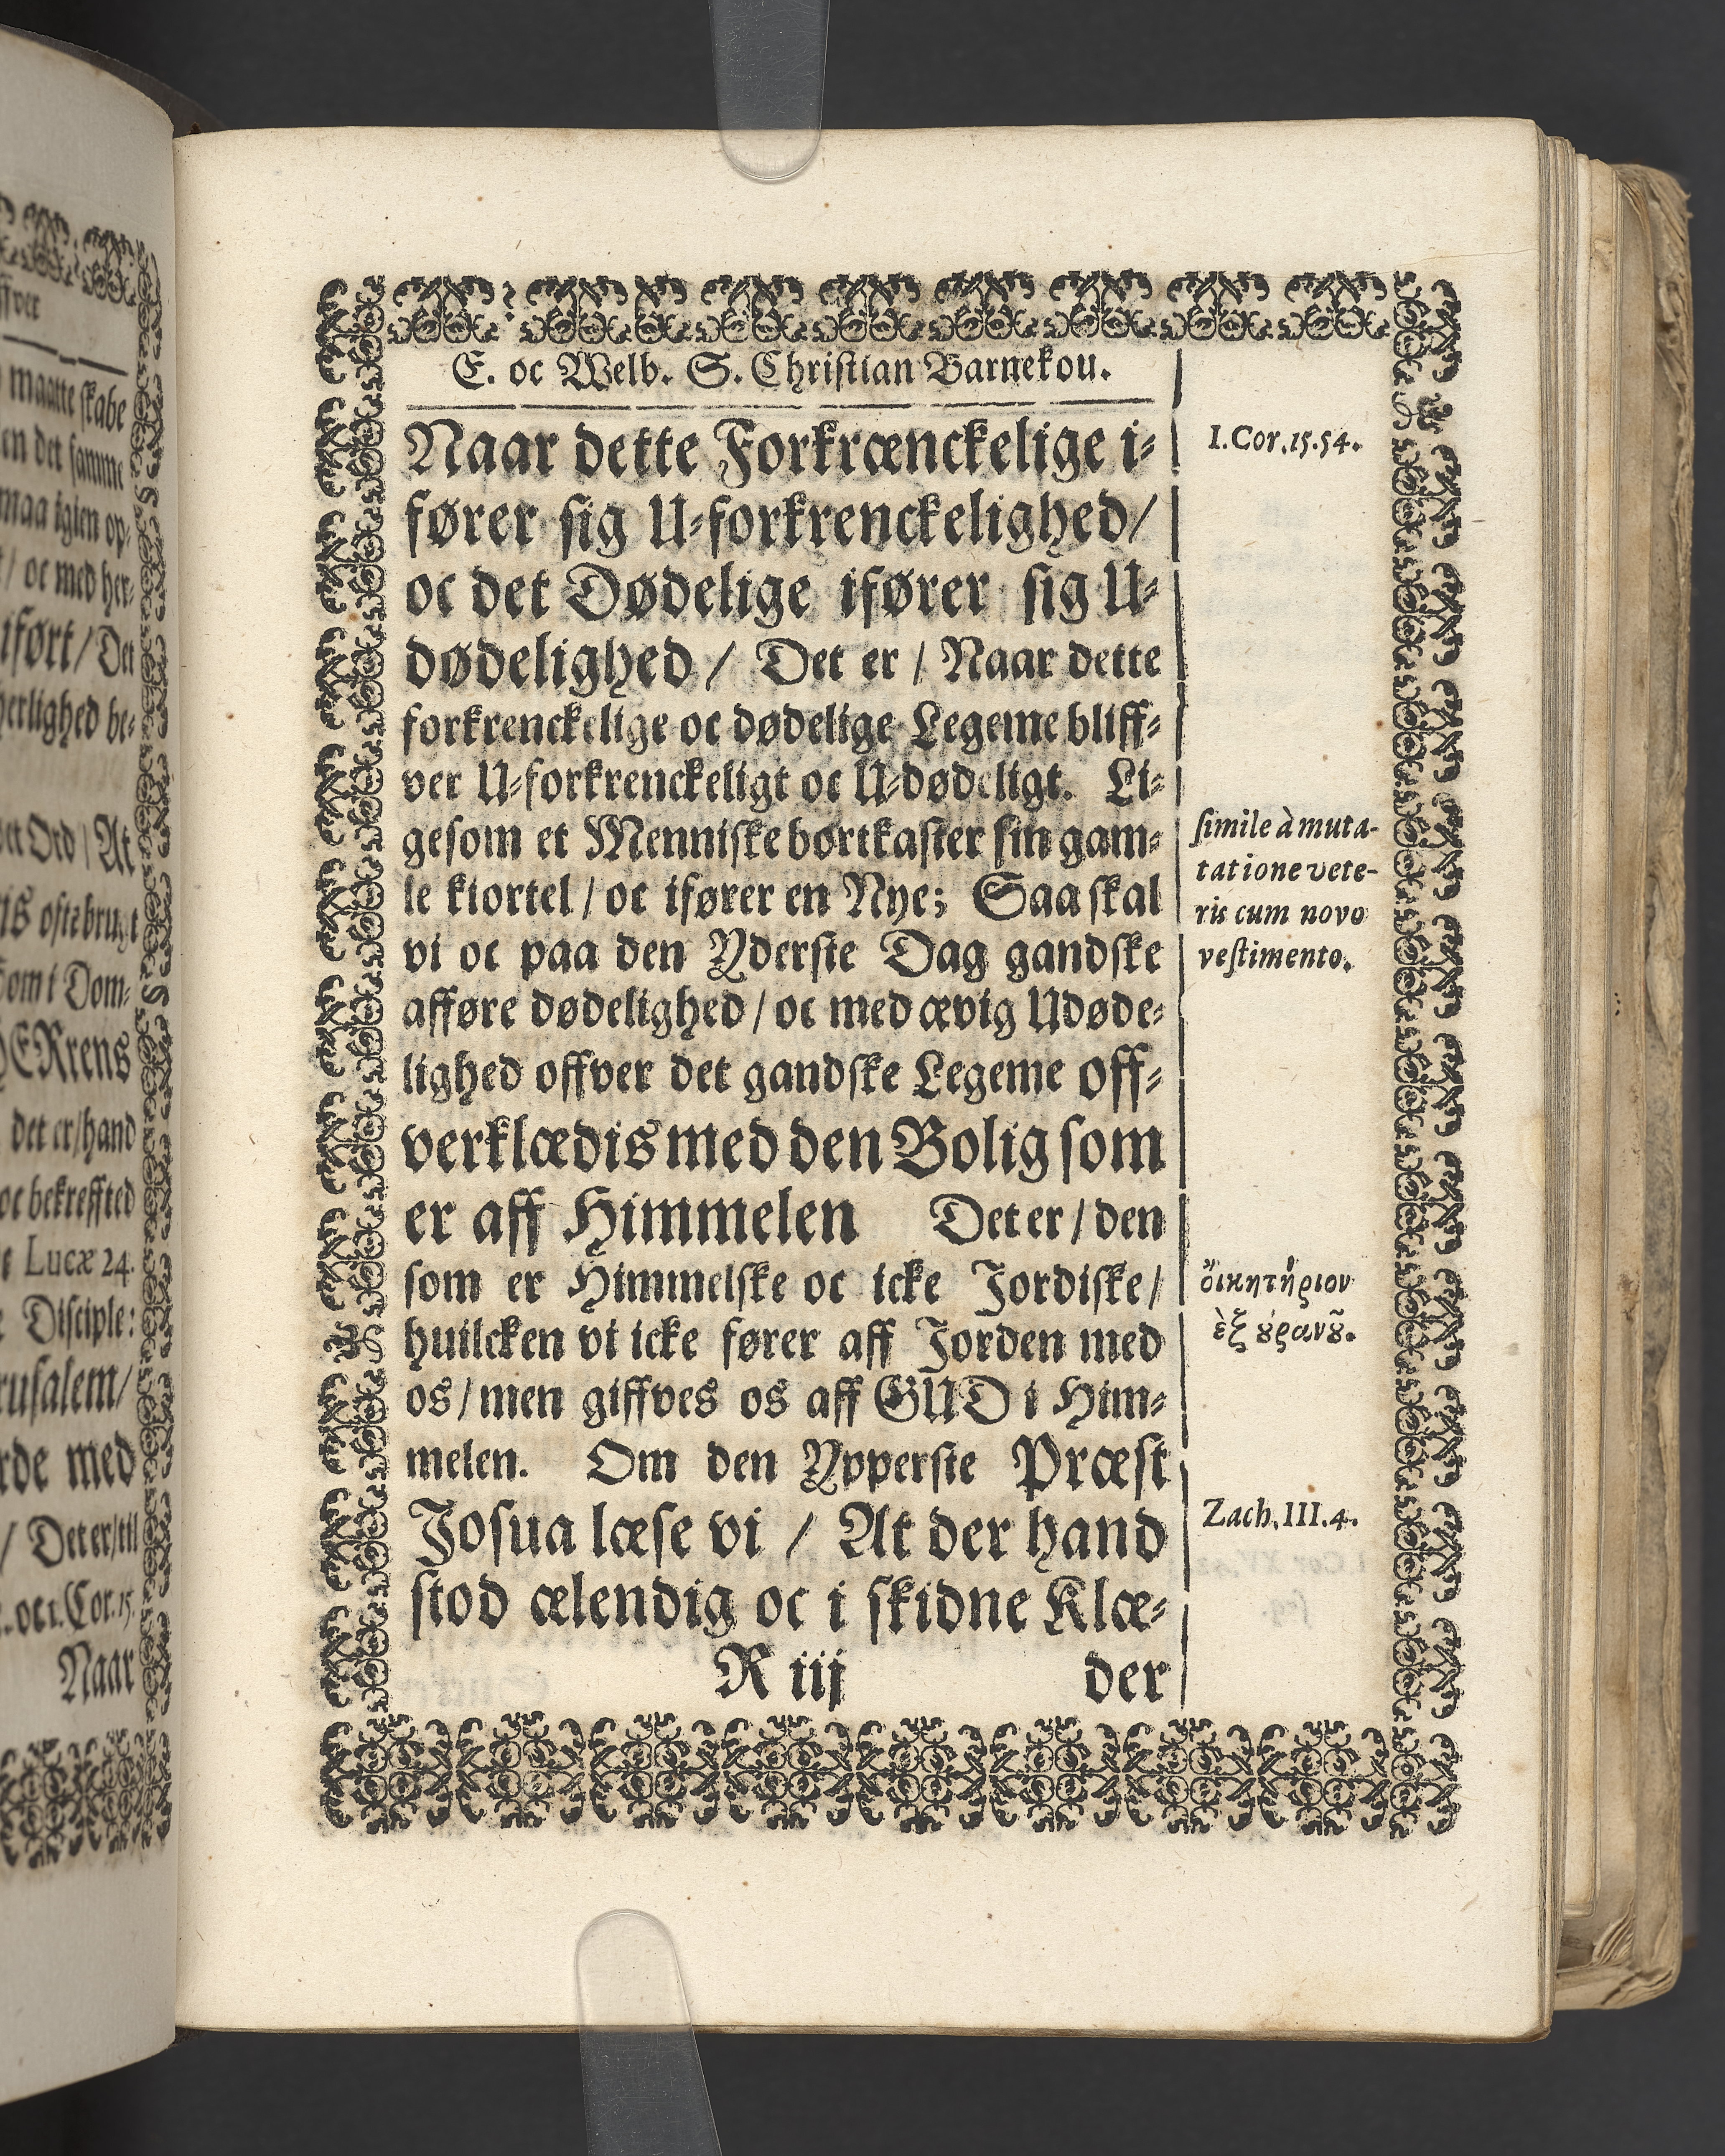 ffver
maatte skabe
en det samme
maa igien op-
/ oc med her-
ifört / Det
herlighed be-
et Ord / At
oftebrugt
som i Dom-
HERrens
det er/hand
oc bekreffted
Lucæ 24.
Disciple:
rusalem/
rde med
/ Det er/til
oc 1. Cor. 15.
Naar
E. oc Welb. S. Christian Barnekou.
Naar dette Forkrænckelige i-
fører sig U-forkrenckelighed/
oc det Dødelige ifører sig U-
dødelighed / Det er / Naar dette
forkrenckelige oc dødelige Legeme bliff-
ver U-forkrenckeligt oc U-dødeligt. Li-
gesom et Menniske bortkaster sin gam-
le kiortel / oc ifører en Nye; Saa skal
vi oc paa den Yderste Dag gandske
afføre dødelighed / oc med ævig Udøde-
lighed offver det gandske Legeme off-
verklædis med den Bolig som
er aff Himmelen Det er / den
som er Himmelske oc icke Jordiske/
huilcken vi icke fører aff Jorden med
os / men giffves os aff GUD i Him-
melen. Om den Ypperste Præst
Josua læse vi / At der hand
stod ælendig oc i skidne Klæ-
R iij der
I. Cor. 15. 54.
simile à muta-
tatione vete-
ris cum novo
vestimento.
ὄικητήριον
ἐξ ȣ̓ρανȣ̃.
Zach. III. 4.